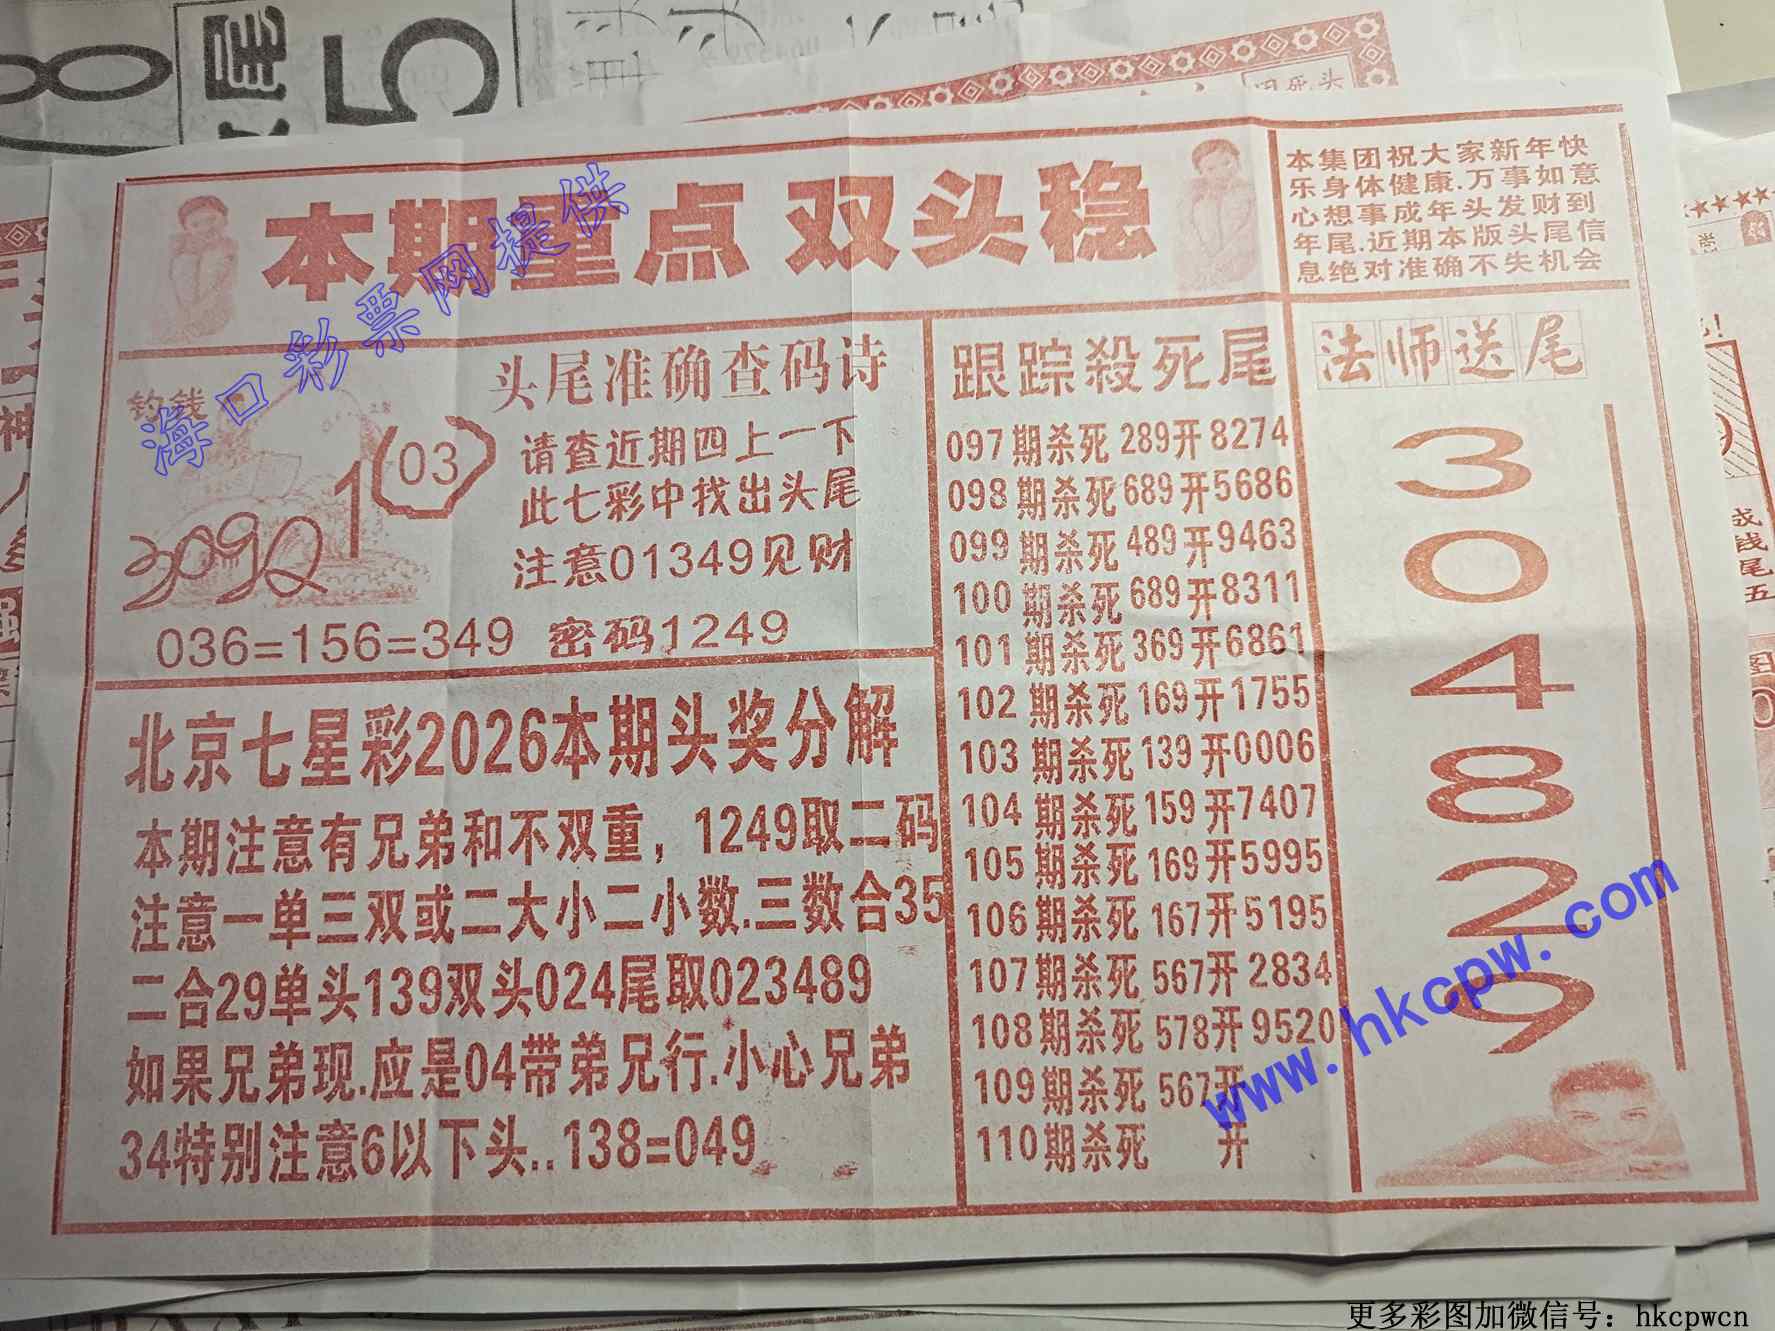 本期重点 双头稳
本集团祝大家新年快
乐身体健康.万事如意
心想事成年头发财到
年尾.近期本版头尾信
息绝对准确不失机会
海口彩票网提供
钓钱
头尾准确查码诗
(03)
请查近期四上一下
此七彩中找出头尾
注意01349见财
036=156=349 密码1249
北京七星彩2026本期头奖分解
本期注意有兄弟和不双重，1249取二码
注意一单三双或二大小二小数.三数合35
二合29单头139双头024尾取023489
如果兄弟现.应是04带弟兄行.小心兄弟
34特别注意6以下头..138=049
跟踪殺死尾
097期杀死289开8274
098期杀死689开5686
099期杀死489开9463
100期杀死689开8311
101期杀死369开6861
102期杀死169开1755
103期杀死139开0006
104期杀死159开7407
105期杀死169开5995
106期杀死167开5195
107期杀死567开2834
108期杀死578开9520
109期杀死567开
110期杀死 开
法师送尾
3
0
4
8
2
9
www.hkcpw.com
更多彩图加微信号：hkcpwcn